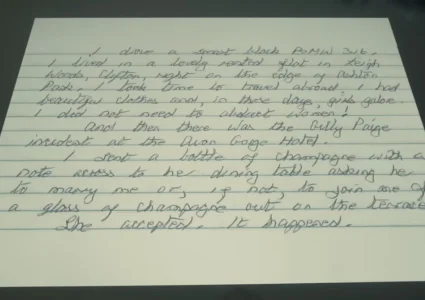 I drove a smart black BMW 3 lit.
I lived in a lovely rented flat in Leigh
Woods, Clifton, right on the edge of Ashton
Park. I took time to travel abroad, I had
beautiful clothes and, in those days, girls galore.
I did not need to abduct women!
And then there was the Billy Paige
incident at the Avon Gorge Hotel.
I sent a bottle of champagne with a
note across to her dining table asking her
to marry me or, if not, to join me for
a glass of champagne out on the terrace
She accepted. It happened.